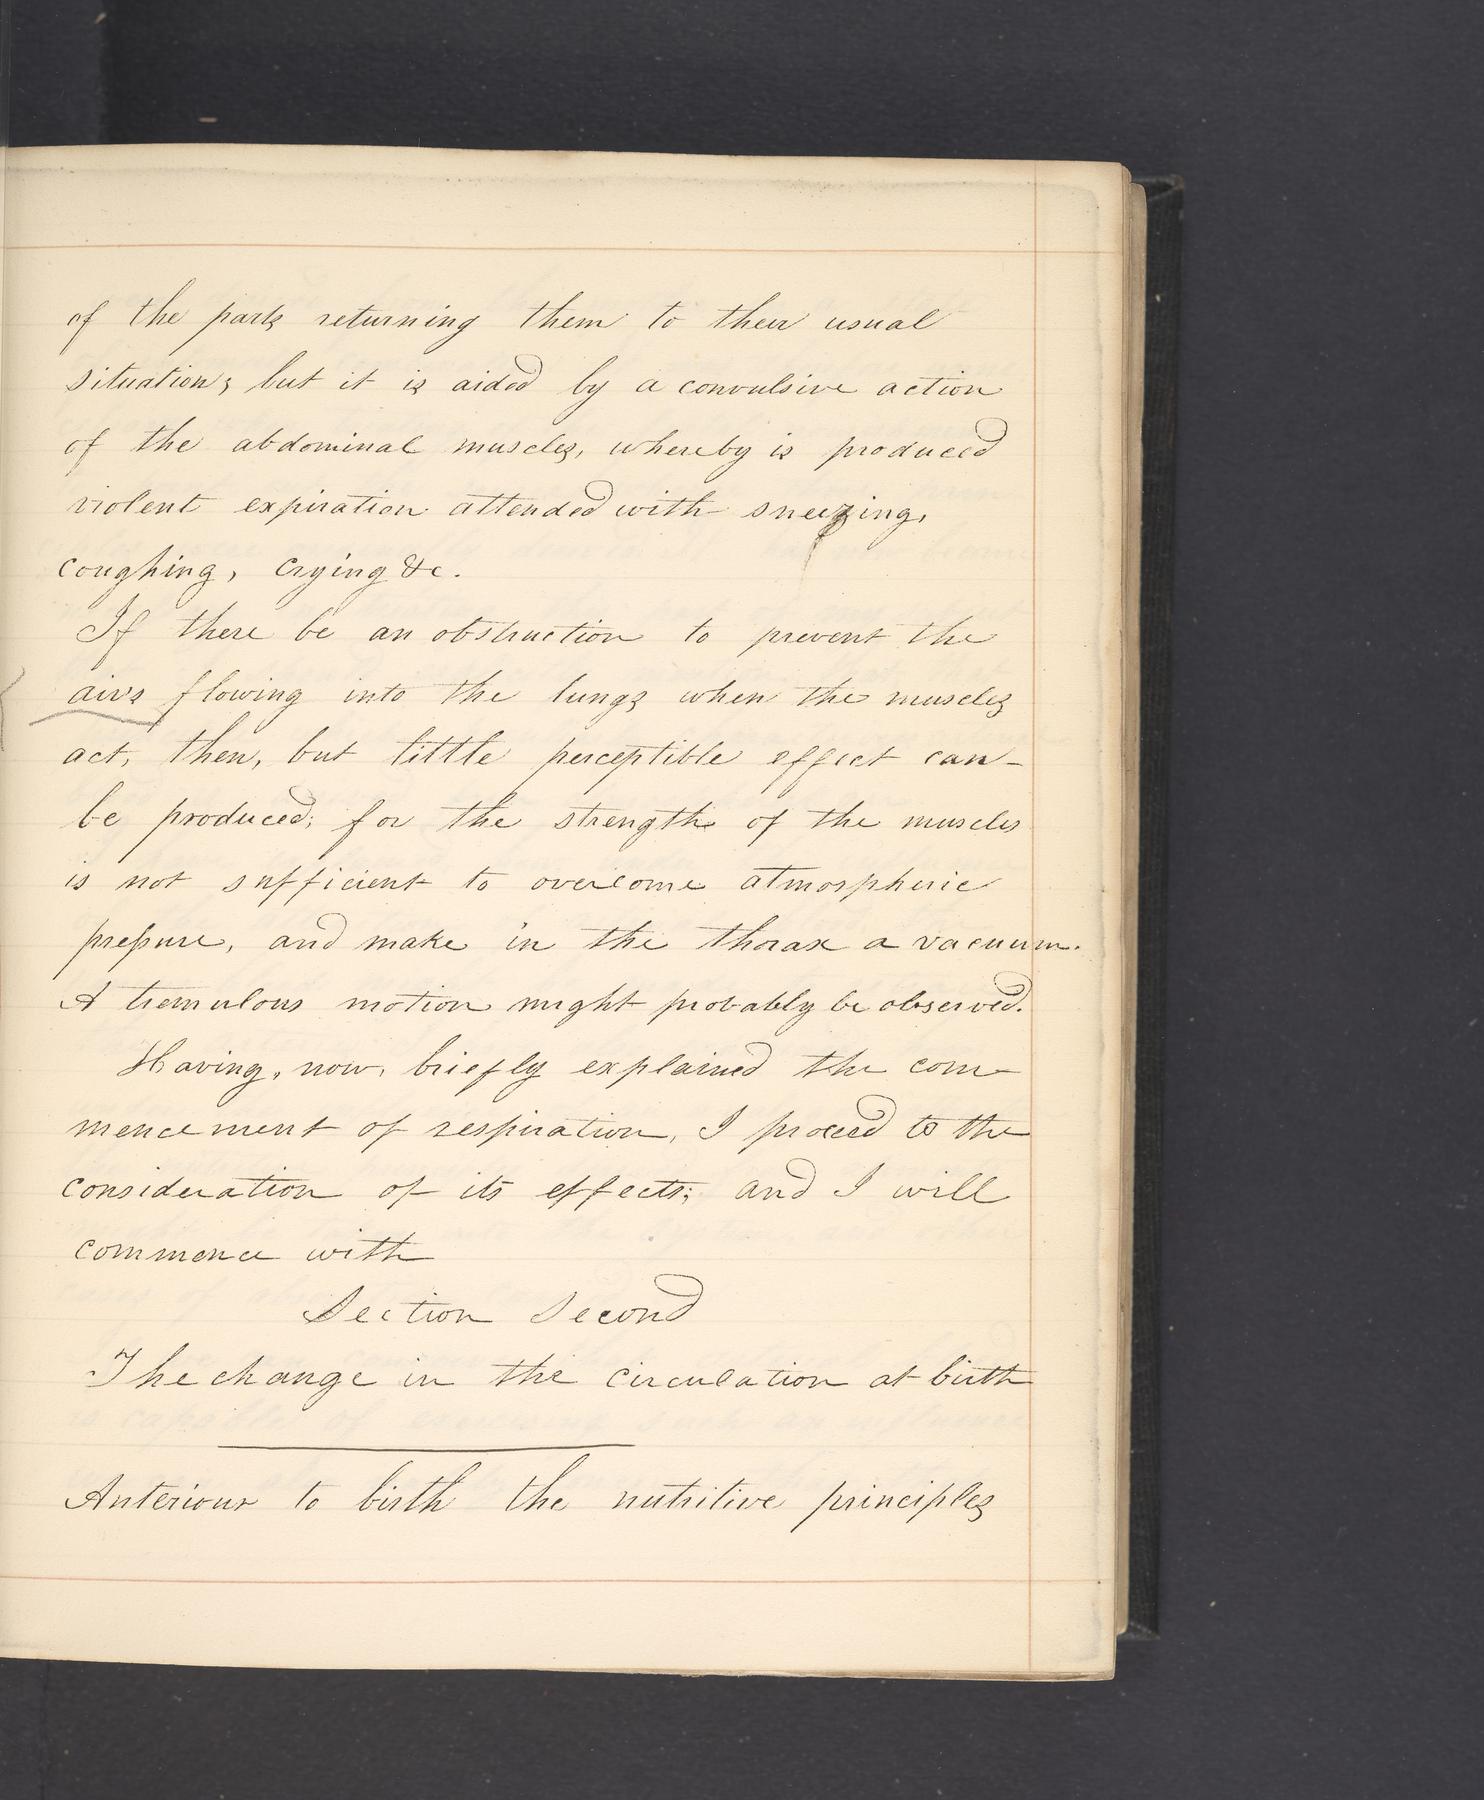 of the parts returning them to their usual
situation; but it is aided by a convulsive action
of the abdominal muscles, whereby is produced
violent expiration attended with sneezing,
coughing, crying &c.
If there be an obstruction to prevent the
airs flowing into the lungs when the muscles
act, then, but little perceptible effect can
be produced; for the strength of the muscles
is not sufficient to overcome atmospheric
pressure, and make in the thorax a vacuum.
A tremulous motion might probably be observed.
Having, now, briefly explained the com-
mencement of respiration, I proceed to the
consideration of its effects; and I will
commence with
Section Second
The change in the circulation at birth
Anteriour to birth the nutritive principles